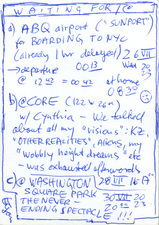 WAITING FOR/@
a) ABQ airport ("SUNPORT")
for BOARDING TO NYC
(already 1 hr delayed) 26 VII
→ departure 0013 Wed 20
@ 1242 = 0042 at home 23
0830
b) @CORE (122 w 26th)
w/ Cynthia - We talked
about all my "visions": KZ,
"OTHER REALITIES", ARGUS, my
"wobbly height dreams" etc
was exhausted afterwards
c) @ WASHINGTON 28 VII 16h
SQUARE PARK 30 VII 20
THE NEVER- 20 23
ENDING SPECTACLE !!!